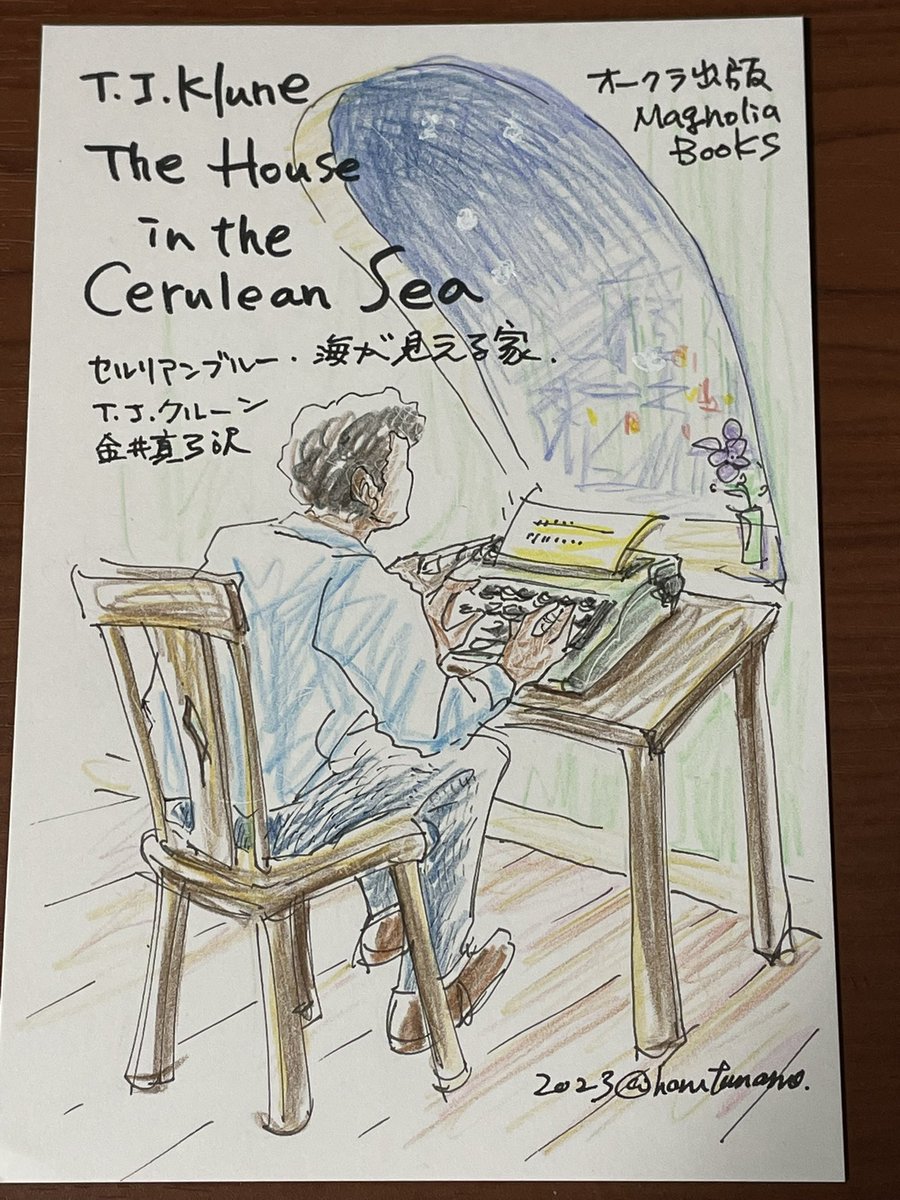 T.J.Klune
The House
in the
Cerulean Sea
セルリアンブルー・海が見える家.
T.J.クルーン
金井真弓訳
オークラ出版
Magnolia
Books
2023